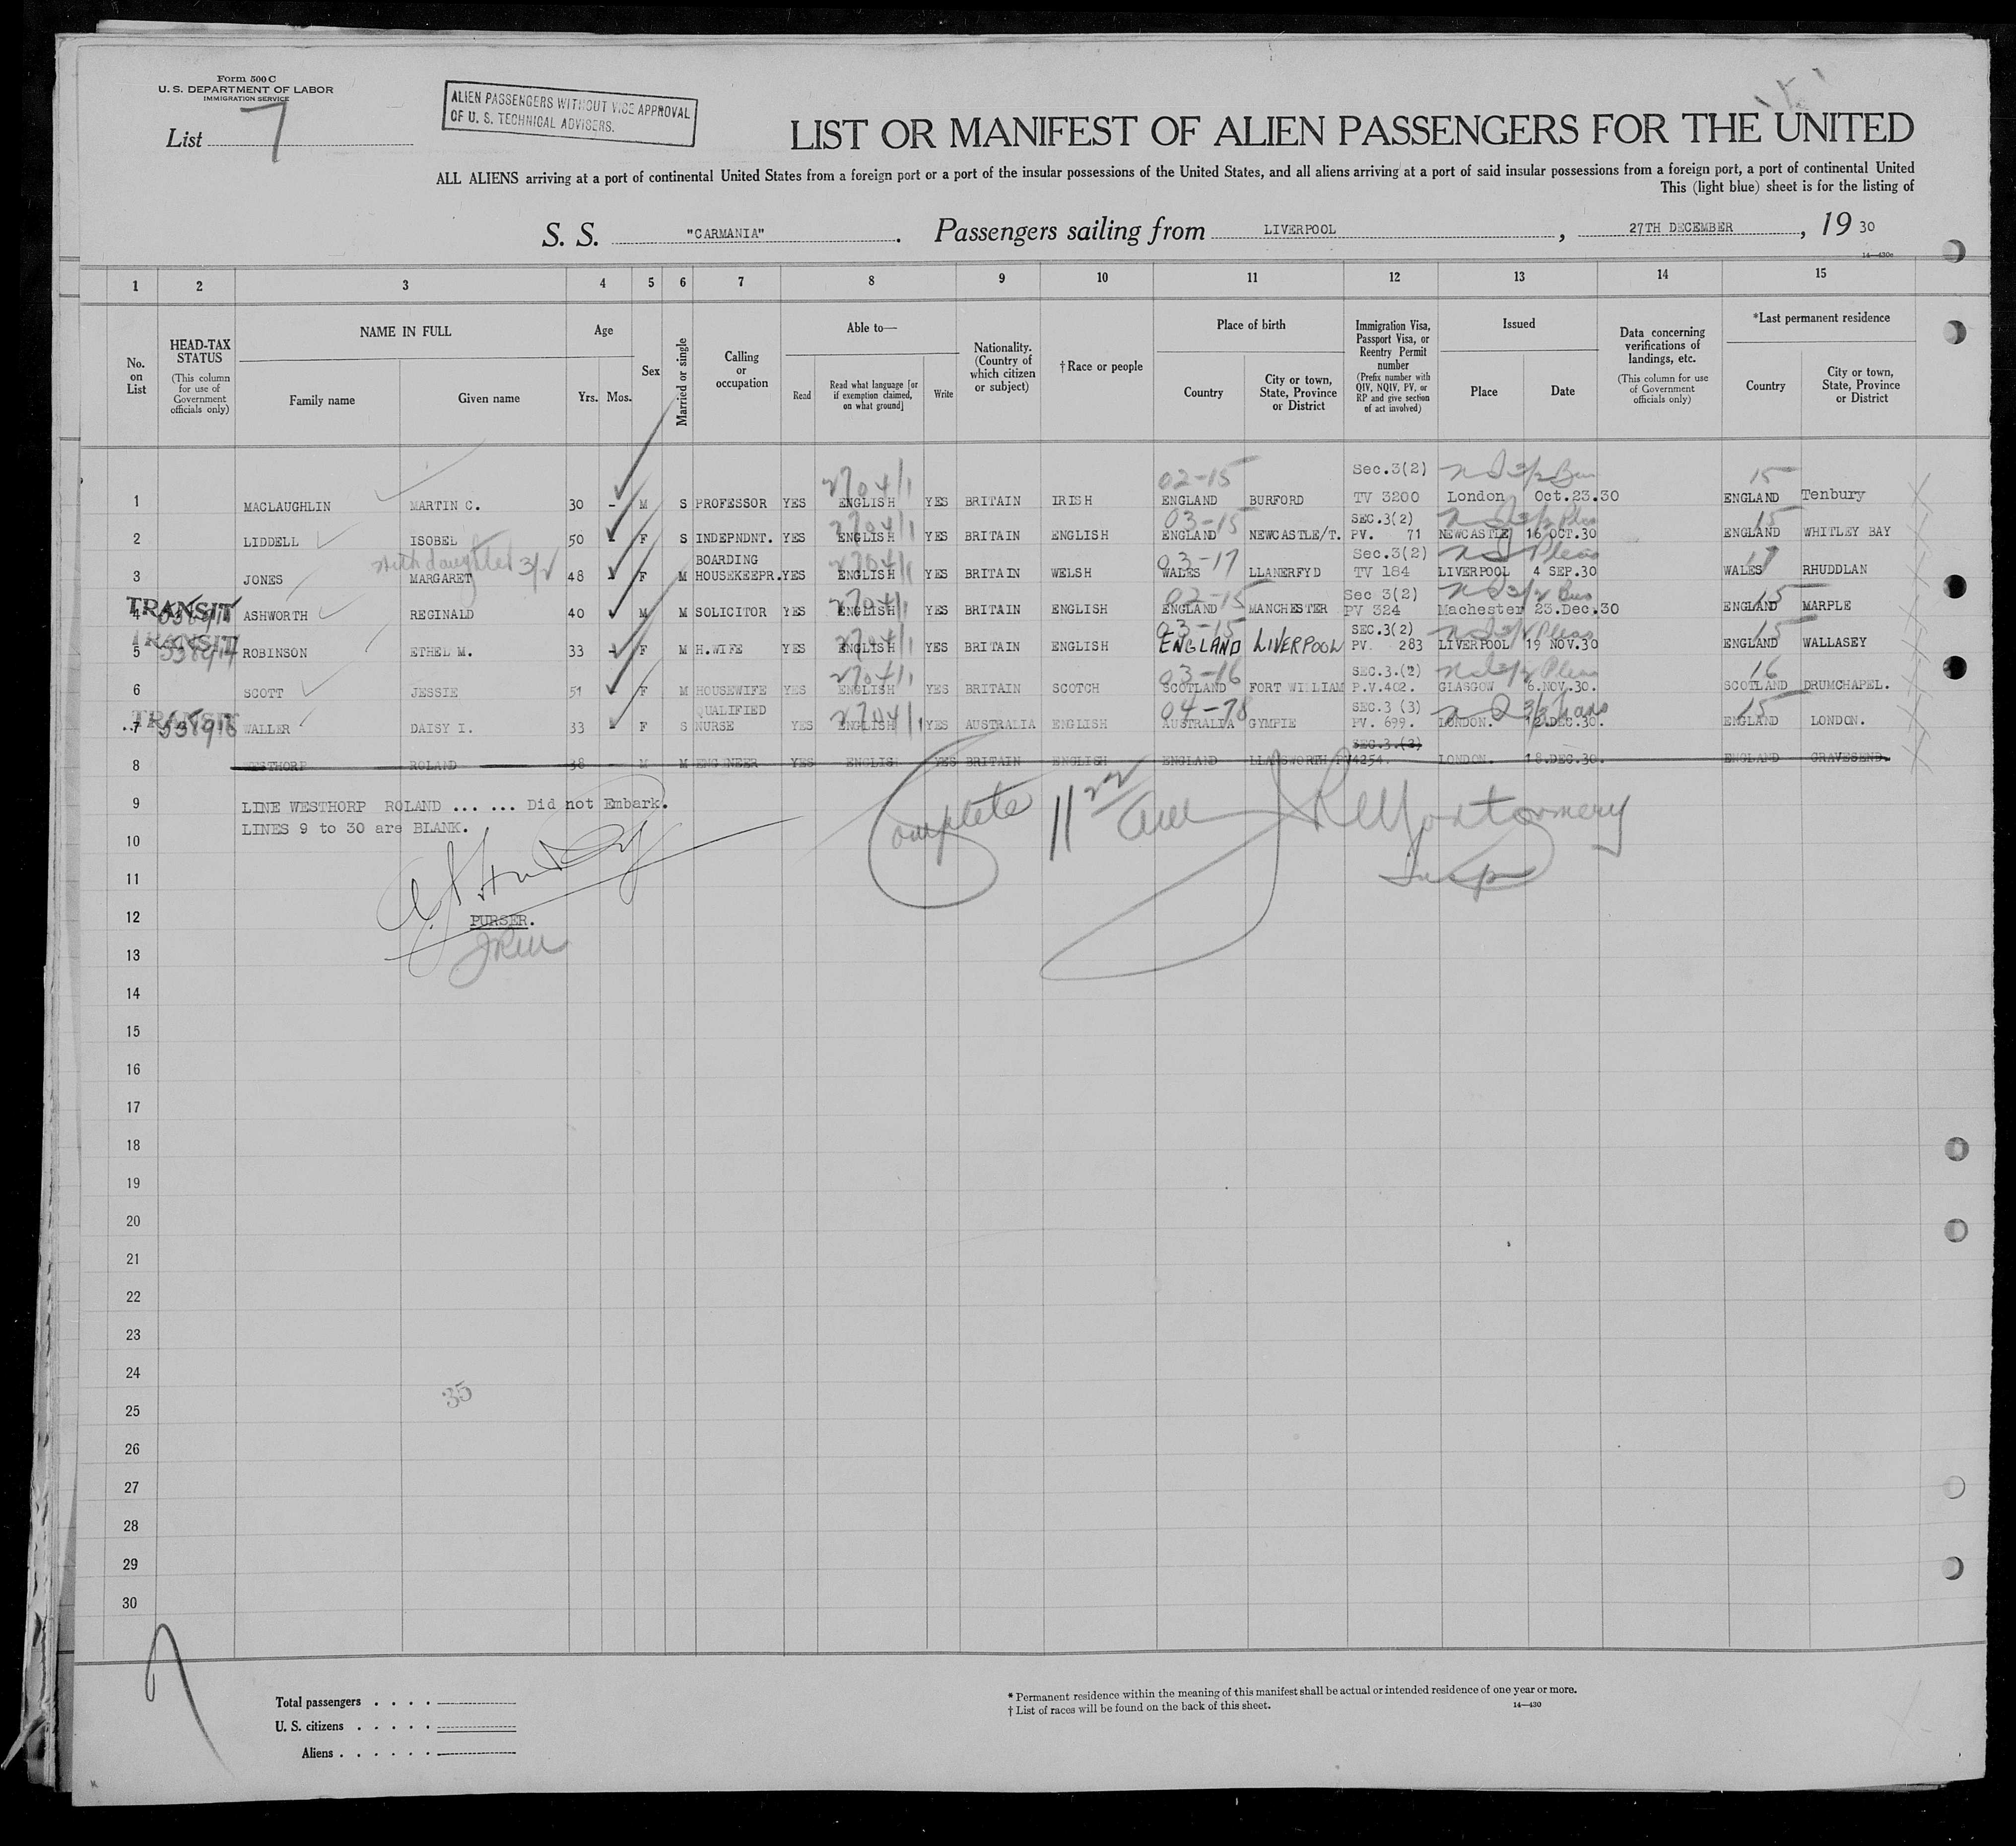 Form 500 C
U. S. DEPARTMENT OF LABOR
IMMIGRATION SERVICE
List 7
ALIEN PASSENGERS WITHOUT VICE APPROVAL
OF U. S. TECHNICAL ADVISERS.
LIST OR MANIFEST OF ALIEN PASSENGERS FOR THE UNITED
ALL ALIENS arriving at a port of continental United States from a foreign port or a port of the insular possessions of the United States, and all aliens arriving at a port of said insular possessions from a foreign port, a port of continental United
This (light blue) sheet is for the listing of
S. S. "CARMANIA". Passengers sailing from LIVERPOOL, 27TH DECEMBER, 19 30
14—430c
1 2 3 4 5 6 7 8 9 10 11 12 13 14 15
No. on List
HEAD-TAX STATUS (This column for use of Government officials only)
NAME IN FULL Family name Given name
Age Yrs. Mos.
Sex
Married or single
Calling or occupation
Able to— Read Read what language [or if exemption claimed, on what ground] Write
Nationality. (Country of which citizen or subject)
†Race or people
Place of birth Country City or town, State, Province or District
Immigration Visa, Passport Visa, or Reentry Permit number (Prefix number with QIV, NQIV, PV, or RP and give section of act involved)
Issued Place Date
Data concerning verifications of landings, etc. (This column for use of Government officials only)
*Last permanent residence Country City or town, State, Province or District
02-15 Sec.3(2) 15
1 MACLAUGHLIN MARTIN C. 30 - M S PROFESSOR YES ENGLISH YES BRITAIN IRISH ENGLAND BURFORD TV 3200 London Oct.23.30 ENGLAND Tenbury
03-15 SEC.3(2) 15
2 LIDDELL ISOBEL 50 F S INDEPNDNT. YES ENGLISH YES BRITAIN ENGLISH ENGLAND NEWCASTLE/T. PV. 71 NEWCASTLE 16 OCT.30 ENGLAND WHITLEY BAY
with daughter 3/2 BOARDING 03-17 Sec.3(2) 17
3 JONES MARGARET 48 F M HOUSEKEEPR. YES ENGLISH YES BRITAIN WELSH WALES LLANERFYD TV 184 LIVERPOOL 4 SEP.30 WALES RHUDDLAN
TRANSIT 02-15 Sec 3(2) 15
4 ASHWORTH REGINALD 40 M M SOLICITOR YES ENGLISH YES BRITAIN ENGLISH ENGLAND MANCHESTER PV 324 Machester 23.Dec.30 ENGLAND MARPLE
TRANSIT 03-15 SEC.3(2) 15
5 ROBINSON ETHEL M. 33 F M H.WIFE YES ENGLISH YES BRITAIN ENGLISH ENGLAND LIVERPOOL PV. 283 LIVERPOOL 19 NOV.30 ENGLAND WALLASEY
03-16 SEC.3.(2) 16
6 SCOTT JESSIE 51 F M HOUSEWIFE YES ENGLISH YES BRITAIN SCOTCH SCOTLAND FORT WILLIAM P.V.402. GLASGOW 6.NOV.30. SCOTLAND DRUMCHAPEL.
TRANSIT QUALIFIED 04-78 SEC.3 (3) 15
7 538916 WALLER DAISY I. 33 F S NURSE YES ENGLISH YES AUSTRALIA ENGLISH AUSTRALIA GYMPIE PV. 699. LONDON. 12.DEC.30. ENGLAND LONDON.
SEC.3.(3)
8 WESTHORP ROLAND 38 M M ENGINEER YES ENGLISH YES BRITAIN ENGLISH ENGLAND PV4254. LONDON. 18.DEC.30. ENGLAND GRAVESEND.
9 LINE WESTHORP ROLAND ... ... Did not Embark.
LINES 9 to 30 are BLANK.
Complete JRMontgomery
Insp
10
11
12 PURSER.
JRM
13
14
15
16
17
18
19
20
21
22
23
24
35
25
26
27
28
29
30
7
Total passengers . . . .
U. S. citizens . . . . .
Aliens . . . . . .
* Permanent residence within the meaning of this manifest shall be actual or intended residence of one year or more.
† List of races will be found on the back of this sheet.
14—430